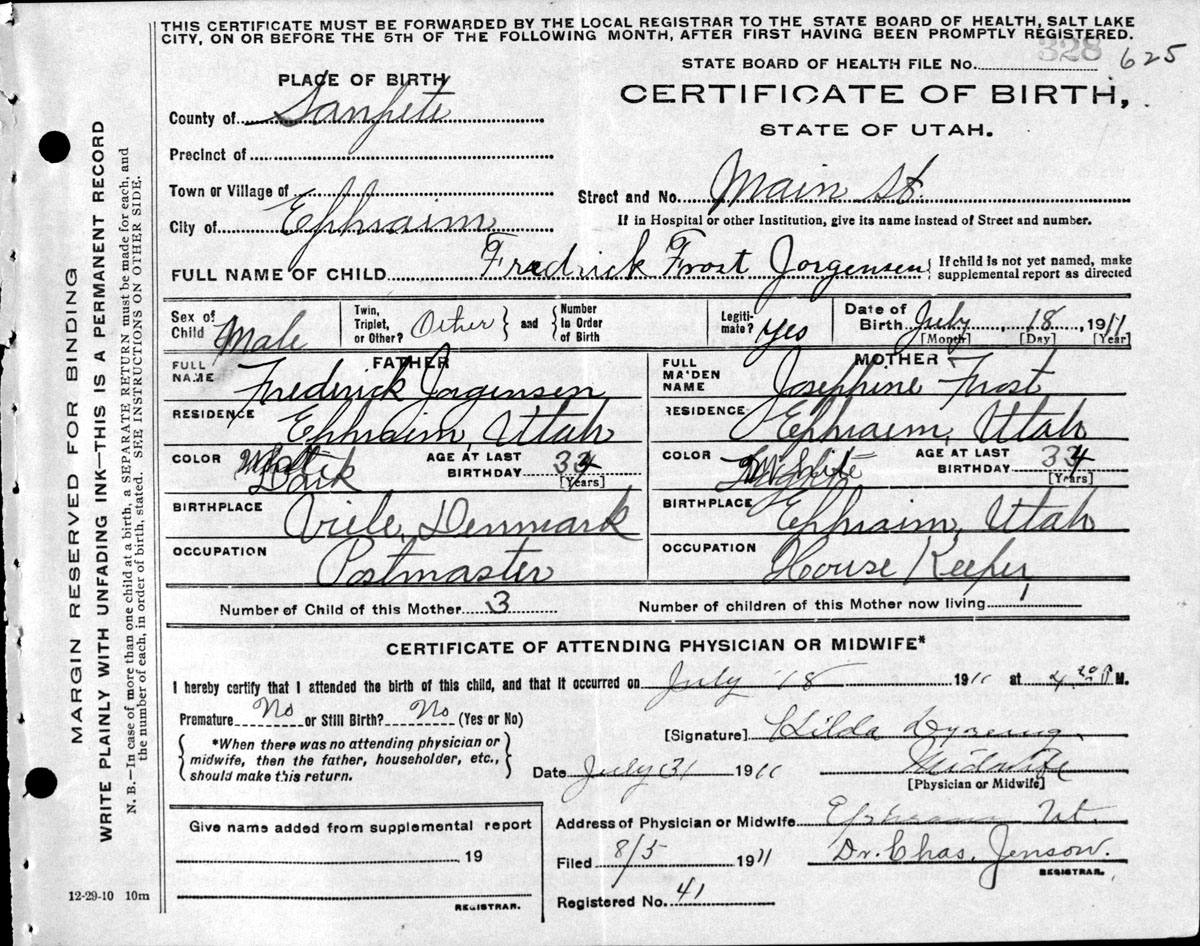 THIS CERTIFICATE MUST BE FORWARDED BY THE LOCAL REGISTRAR TO THE STATE BOARD OF HEALTH, SALT LAKE
CITY, ON OR BEFORE THE 5TH OF THE FOLLOWING MONTH, AFTER FIRST HAVING BEEN PROMPTLY REGISTERED.
328
STATE BOARD OF HEALTH FILE No. 625
PLACE OF BIRTH
CERTIFICATE OF BIRTH,
STATE OF UTAH.
County of Sanpete
Precinct of
Town or Village of
Street and No. Main St.
City of Ephraim
If in Hospital or other Institution, give its name instead of Street and number.
FULL NAME OF CHILD Fredrick Frost Jorgensen { If child is not yet named, make supplemental report as directed
Sex of Child Male
Twin, Triplet, or Other? Other } and { Number In Order of Birth
Legiti-mate? Yes
Date of Birth July 18, 1911
[Month] [Day] [Year]
FATHER
FULL NAME Fredrick Jorgensen
RESIDENCE Ephraim, Utah
COLOR Dark
AGE AT LAST BIRTHDAY 34
[Years]
BIRTHPLACE Viele, Denmark
OCCUPATION Postmaster
MOTHER
FULL MAIDEN NAME Josephine Frost
RESIDENCE Ephraim, Utah
COLOR White
AGE AT LAST BIRTHDAY 34
[Years]
BIRTHPLACE Ephraim, Utah
OCCUPATION House Keeper
Number of Child of this Mother 3
Number of children of this Mother now living 1
CERTIFICATE OF ATTENDING PHYSICIAN OR MIDWIFE*
I hereby certify that I attended the birth of this child, and that it occurred on July 18 1911 at 4 P M.
Premature No or Still Birth? No (Yes or No)
{ *When there was no attending physician or midwife, then the father, householder, etc., should make this return. }
[Signature] Hilda Dyreng
Midwife
[Physician or Midwife]
Date July 31 1911
Give name added from supplemental report
19
REGISTRAR.
Address of Physician or Midwife Ephraim Ut.
Filed 8/5 1911 Dr. Chas. Jenson.
REGISTRAR.
Registered No. 41
12-29-10 10m
MARGIN RESERVED FOR BINDING
WRITE PLAINLY WITH UNFADING INK—THIS IS A PERMANENT RECORD
N. B.—In case of more than one child at a birth, a SEPARATE RETURN must be made for each, and
the number of each, in order of birth, stated. SEE INSTRUCTIONS ON OTHER SIDE.